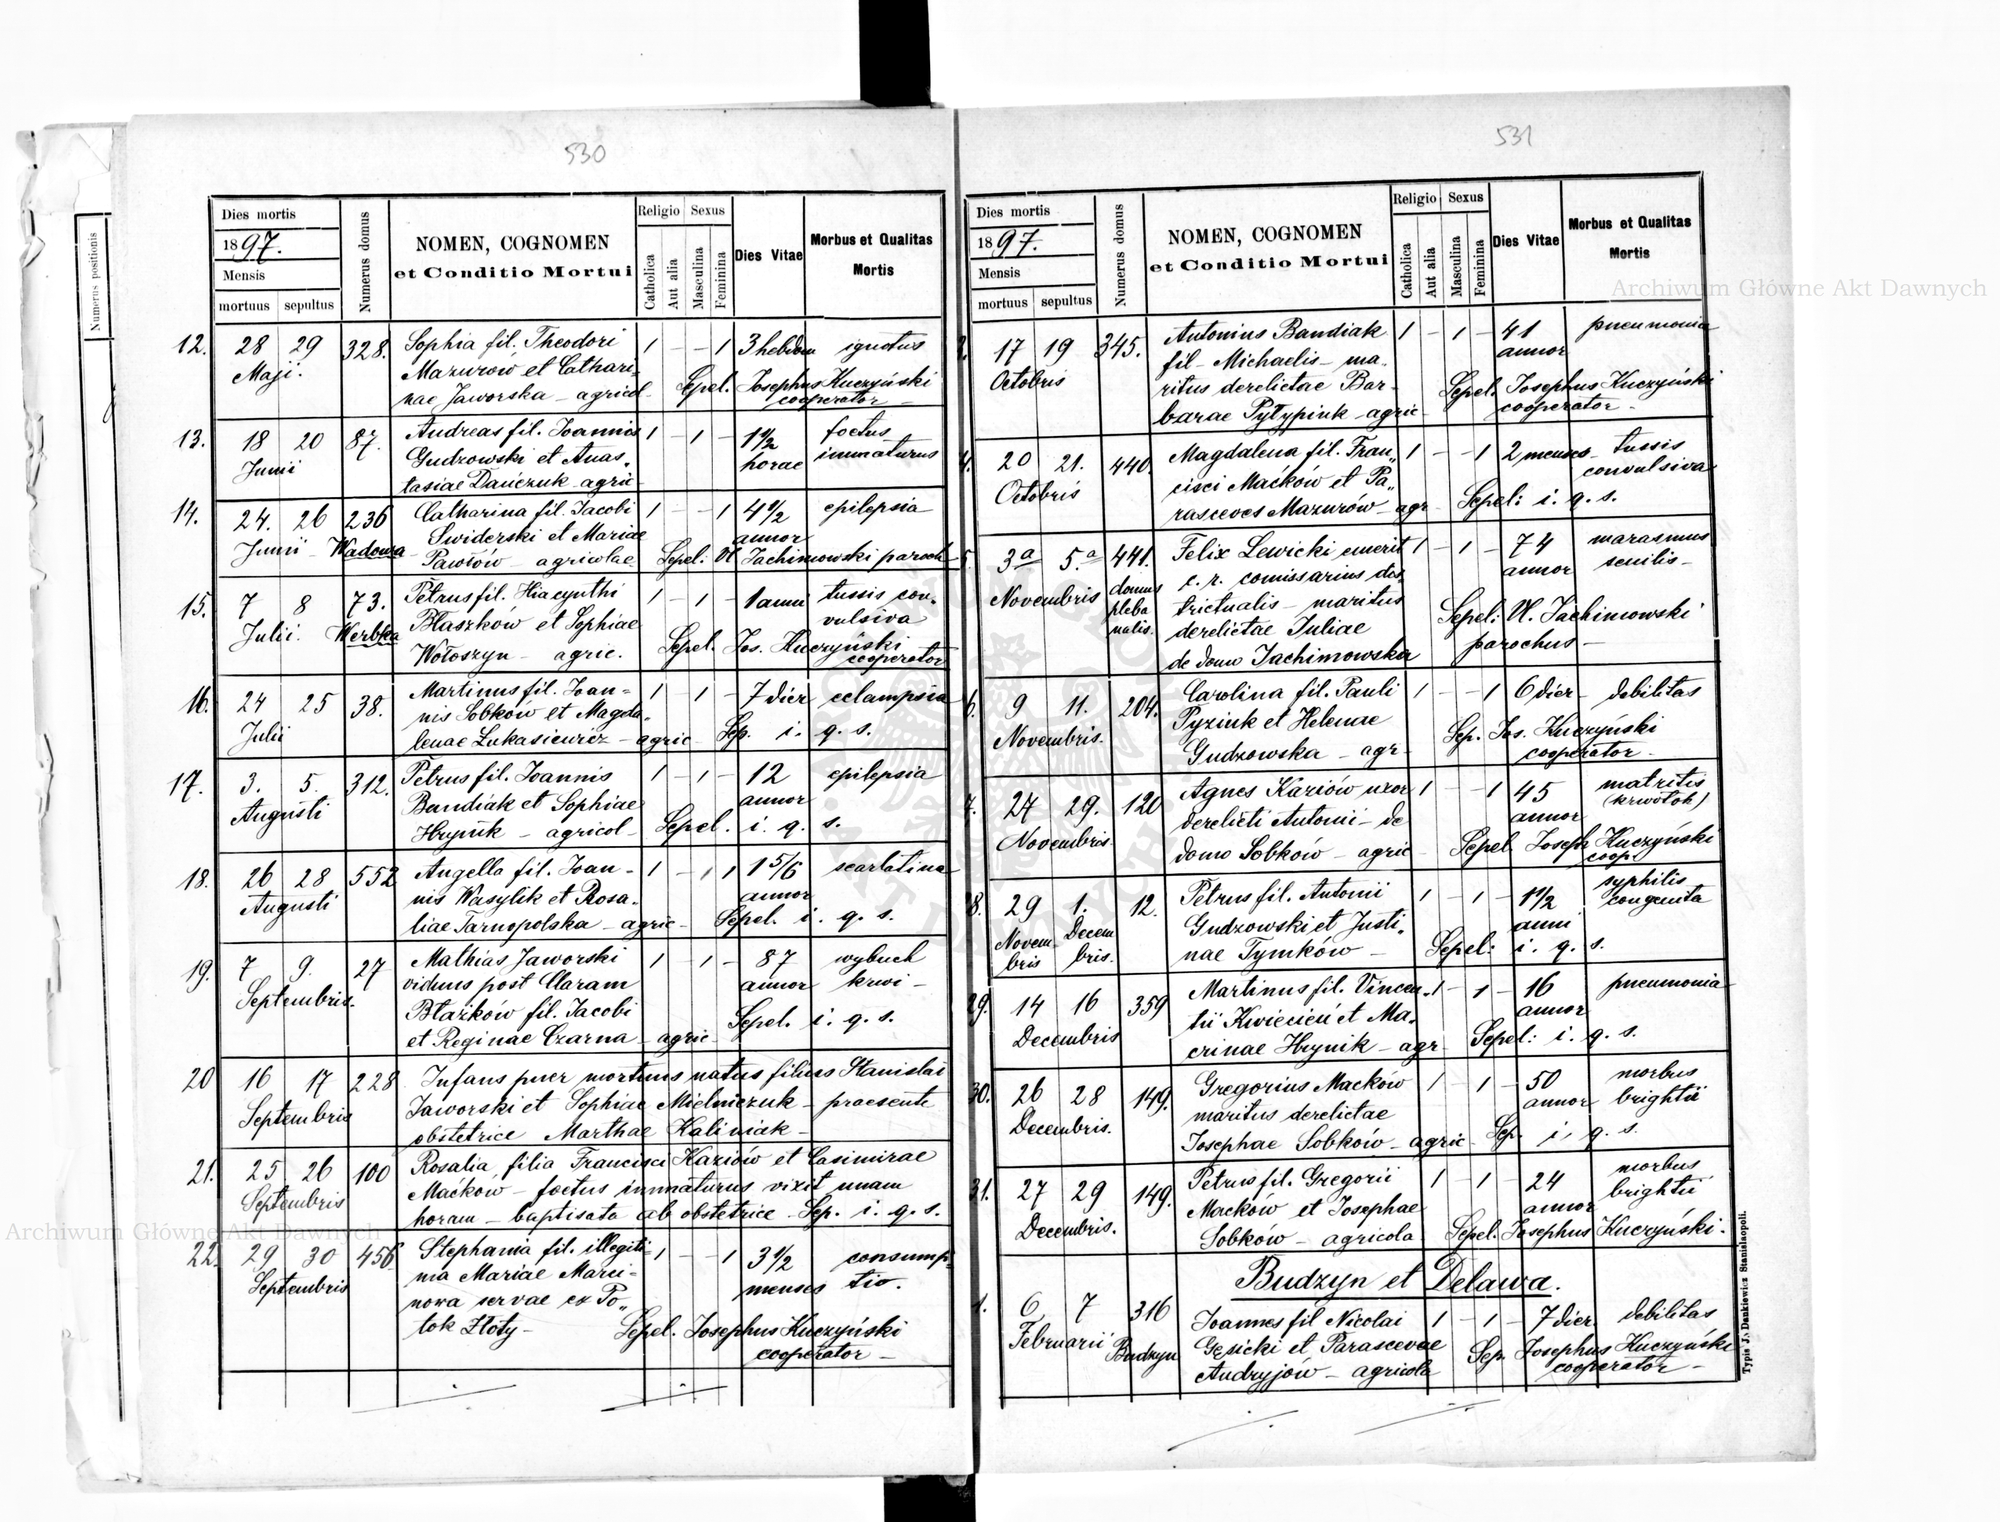 530
Dies mortis
1897.
Mensis
mortuus sepultus
Numerus domus
NOMEN, COGNOMEN
et Conditio Mortui
Religio Sexus
Catholica
Aut alia
Masculina
Feminina
Dies Vitae
Morbus et Qualitas
Mortis
Numerus positionis
12. 28 29 328. Sophia fil. Theodori 1 – – 1 3 hebdom ignotus
Maji. Mazurów et Cathari-
Sepel. Josephus Kuczyński
nae Jaworska – agricol
cooperator –
13. 18 20 87. Andreas fil. Joannis 1 – 1 – 1 1/2 foetus
Junii Gudzowski et Anas- horae immaturus
tasiae Dańczuk – agric
14. 24. 26 236 Catharina fil. Jacobi 1 – – 1 4 1/2 epilepsia
Junii – Wadowa Swiderski et Mariae annor
Pawłów – agricolae Sepel: Vl Jachimowski paroch
15. 7 8 73. Petrus fil. Hiacynthi 1 – 1 – 1 anni tussis con-
Julii. Werbka Błaszków et Sophiae vulsiva
Wołoszyn – agric. Sepel. Jos. Kuczyński
cooperator
16. 24 25 38. Martinus fil. Joan- 1 – 1 – 7 dier eclampsia
Julii nis Sobków et Magda-
lenae Łukasiewicz – agric Sep. i. q. s.
17. 3. 5. 312. Petrus fil. Joannis 1 – 1 – 12 epilepsia
Augusti Bandiak et Sophiae annor
Hryńk – agricol – Sepel. i. q. s.
18. 26 28 552 Angella fil. Joan- 1 – 1 1 1 5/6 scarlatina
Augusti nis Wasylik et Rosa- annor
liae Tarnopolska – agric – Sepel. i. q. s.
19. 7 9. 27 Mathias Jaworski 1 – 1 – 87 wybuch
Septembris. viduus post Claram annor krwi –
Błazków fil. Jacobi
et Reginae Czarna – agric – Sepel. i. q. s.
20 16 17 228 Infans puer mortuus natus filius Stanislai
Septembris Jaworski et Sophiae Mielniczuk – praesente
obstetrice Marthae Kaliniak –
21. 25 26 100 Rosalia filia Francisci Kaziów et Casimirae
Septembris Maćków – foetus immaturus vixit unam
horam – baptisata ab obstetrice – Sep. i. q. s.
22. 29 30 456 Stephania fil. illegiti- 1 – – 1 3 1/2 consump-
Septembris ma Mariae Marci- menses tio.
nowa servae ex Po-
tok Złoty – Sepel. Josephus Kuczyński
cooperator –
531
Dies mortis
1897.
Mensis
mortuus sepultus
Numerus domus
NOMEN, COGNOMEN
et Conditio Mortui
Religio Sexus
Catholica
Aut alia
Masculina
Feminina
Dies Vitae
Morbus et Qualitas
Mortis
17 19 345. Antonius Bandiak 1 – 1 – 41 pneumonia
Octobris fil – Michaelis – ma- annor
ritus derelictae Bar- Sepel. Josephus Kuczyński
barae Pytypiuk – agric – cooperator –
4. 20 21. 440. Magdalena fil. Fran- 1 – – 1 2 menses – tussis
Octobris cisci Maćków et Pa- convulsiva
rasceves Mazurów – agr – Sepel: i. q. s.
5. 3a 5a 441. Felix Lewicki emerit 1 – 1 – 74 marasmus
Novembris domus c. r. comissarius dis- annor senilis –
pleba trictualis – maritus
nalis. derelictae Juliae Sepel: Vl. Jachimowski
de domo Jachimowska parochus –
6. 9 11. 204. Carolina fil. Pauli 1 – – 1 6 dier – debilitas
Novembris. Pyziuk et Helenae Sep. Jos. Kuczyński
Gudzowska – agr – cooperator –
7. 27 29. 120 Agnes Kaziów uxor 1 – – 1 45 matritis
Novembris derelicti Antonii – de annor (krwotok)
domo Sobków – agric – Sepel Joseph Kuczyński
coop.
28. 29 1. 12. Petrus fil. Antonii 1 – 1 – 1 1/2 syphilis
Novem- Decem Gudzowski et Justi- anni congenita
bris bris. nae Tymków – Sepel: i. q. s.
29. 14 16 359 Martinus fil. Vincen- 1 – 1 – 16 pneumonia
Decembris tii Kwiecień et Ma- annor
crinae Hrynik – agr – Sepel: i. q. s.
30. 26 28 149. Gregorius Macków 1 – 1 – 50 morbus
Decembris. maritus derelictae annor brightii
Josephae Sobków – agric – Sep. i. q. s.
31. 27 29 149. Petrus fil. Gregorii 1 – 1 – 24 morbus
Decembris. Macków et Josephae annor brightii
Sobków – agricola Sepel. Josephus Kuczyński.
Budzyn et Delawa.
1. 6 7 316 Joannes fil Nicolai 1 – 1 – 7 dier debilitas
Februarii Budzyn Gęsicki et Parascevae Sep. Josephus Kuczyński
Andryjów – agricola cooperator –
Typis J. Dankiewicz Stanislaopoli.
Archiwum Główne Akt Dawnych
Archiwum Główne Akt Dawnych